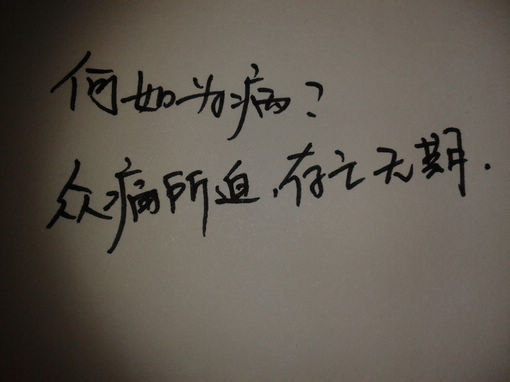 何如为病？
众病所迫，存亡无期.